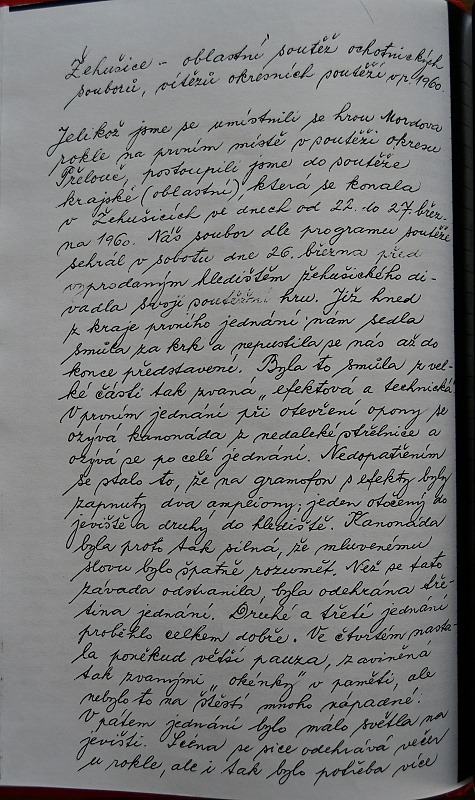 Žehušice – oblastní soutěž ochotnických
souborů, vítězů okresních soutěží v r. 1960.
Jelikož jsme se umístnili se hrou Mordova
rokle na prvním místě v soutěži okresu
Přelouč, postoupili jsme do soutěže
krajské (oblastní), která se konala
v Žehušicích ve dnech od 22. do 27. břez-
na 1960. Náš soubor dle programu soutěže
sehrál v sobotu dne 26. března před
vyprodaným hledištěm žehušického di-
vadla svoji soutěžní hru. Již hned
z kraje prvního jednání nám sedla
smůla za krk a nepustila se nás až do
konce představení. Byla to smůla z vel-
ké části tak zvaná „efektová a technická.
V prvním jednání při otevření opony se
ozývá kanonáda z nedaleké střelnice a
ozývá se po celé jednání. Nedopatřením
se stalo to, že na gramofon s efekty byly
zapnuty dva ampliony; jeden otočený do
jeviště a druhý do hlediště. Kanonáda
byla proto tak silná, že mluvenému
slovu bylo špatně rozumět. Než se tato
závada odstranila, byla odehrána tře-
tina jednání. Druhé a třetí jednání
proběhlo celkem dobře. Ve čtvrtém nasta-
la poněkud větší pauza, zaviněná
tak zvanými „okénky" v paměti, ale
nebylo to na štěstí mnoho nápadné.
V pátém jednání bylo málo světla na
jevišti. Scéna se sice odehrává večer
u rokle, ale i tak bylo potřeba více